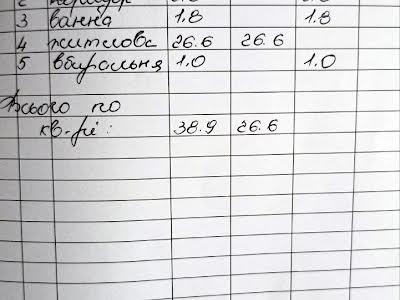 3 ванна 1.8 1.8
4 житлова 26.6 26.6
5 вбиральня 1.0 1.0
Всього по
кв-рі: 38.9 26.6